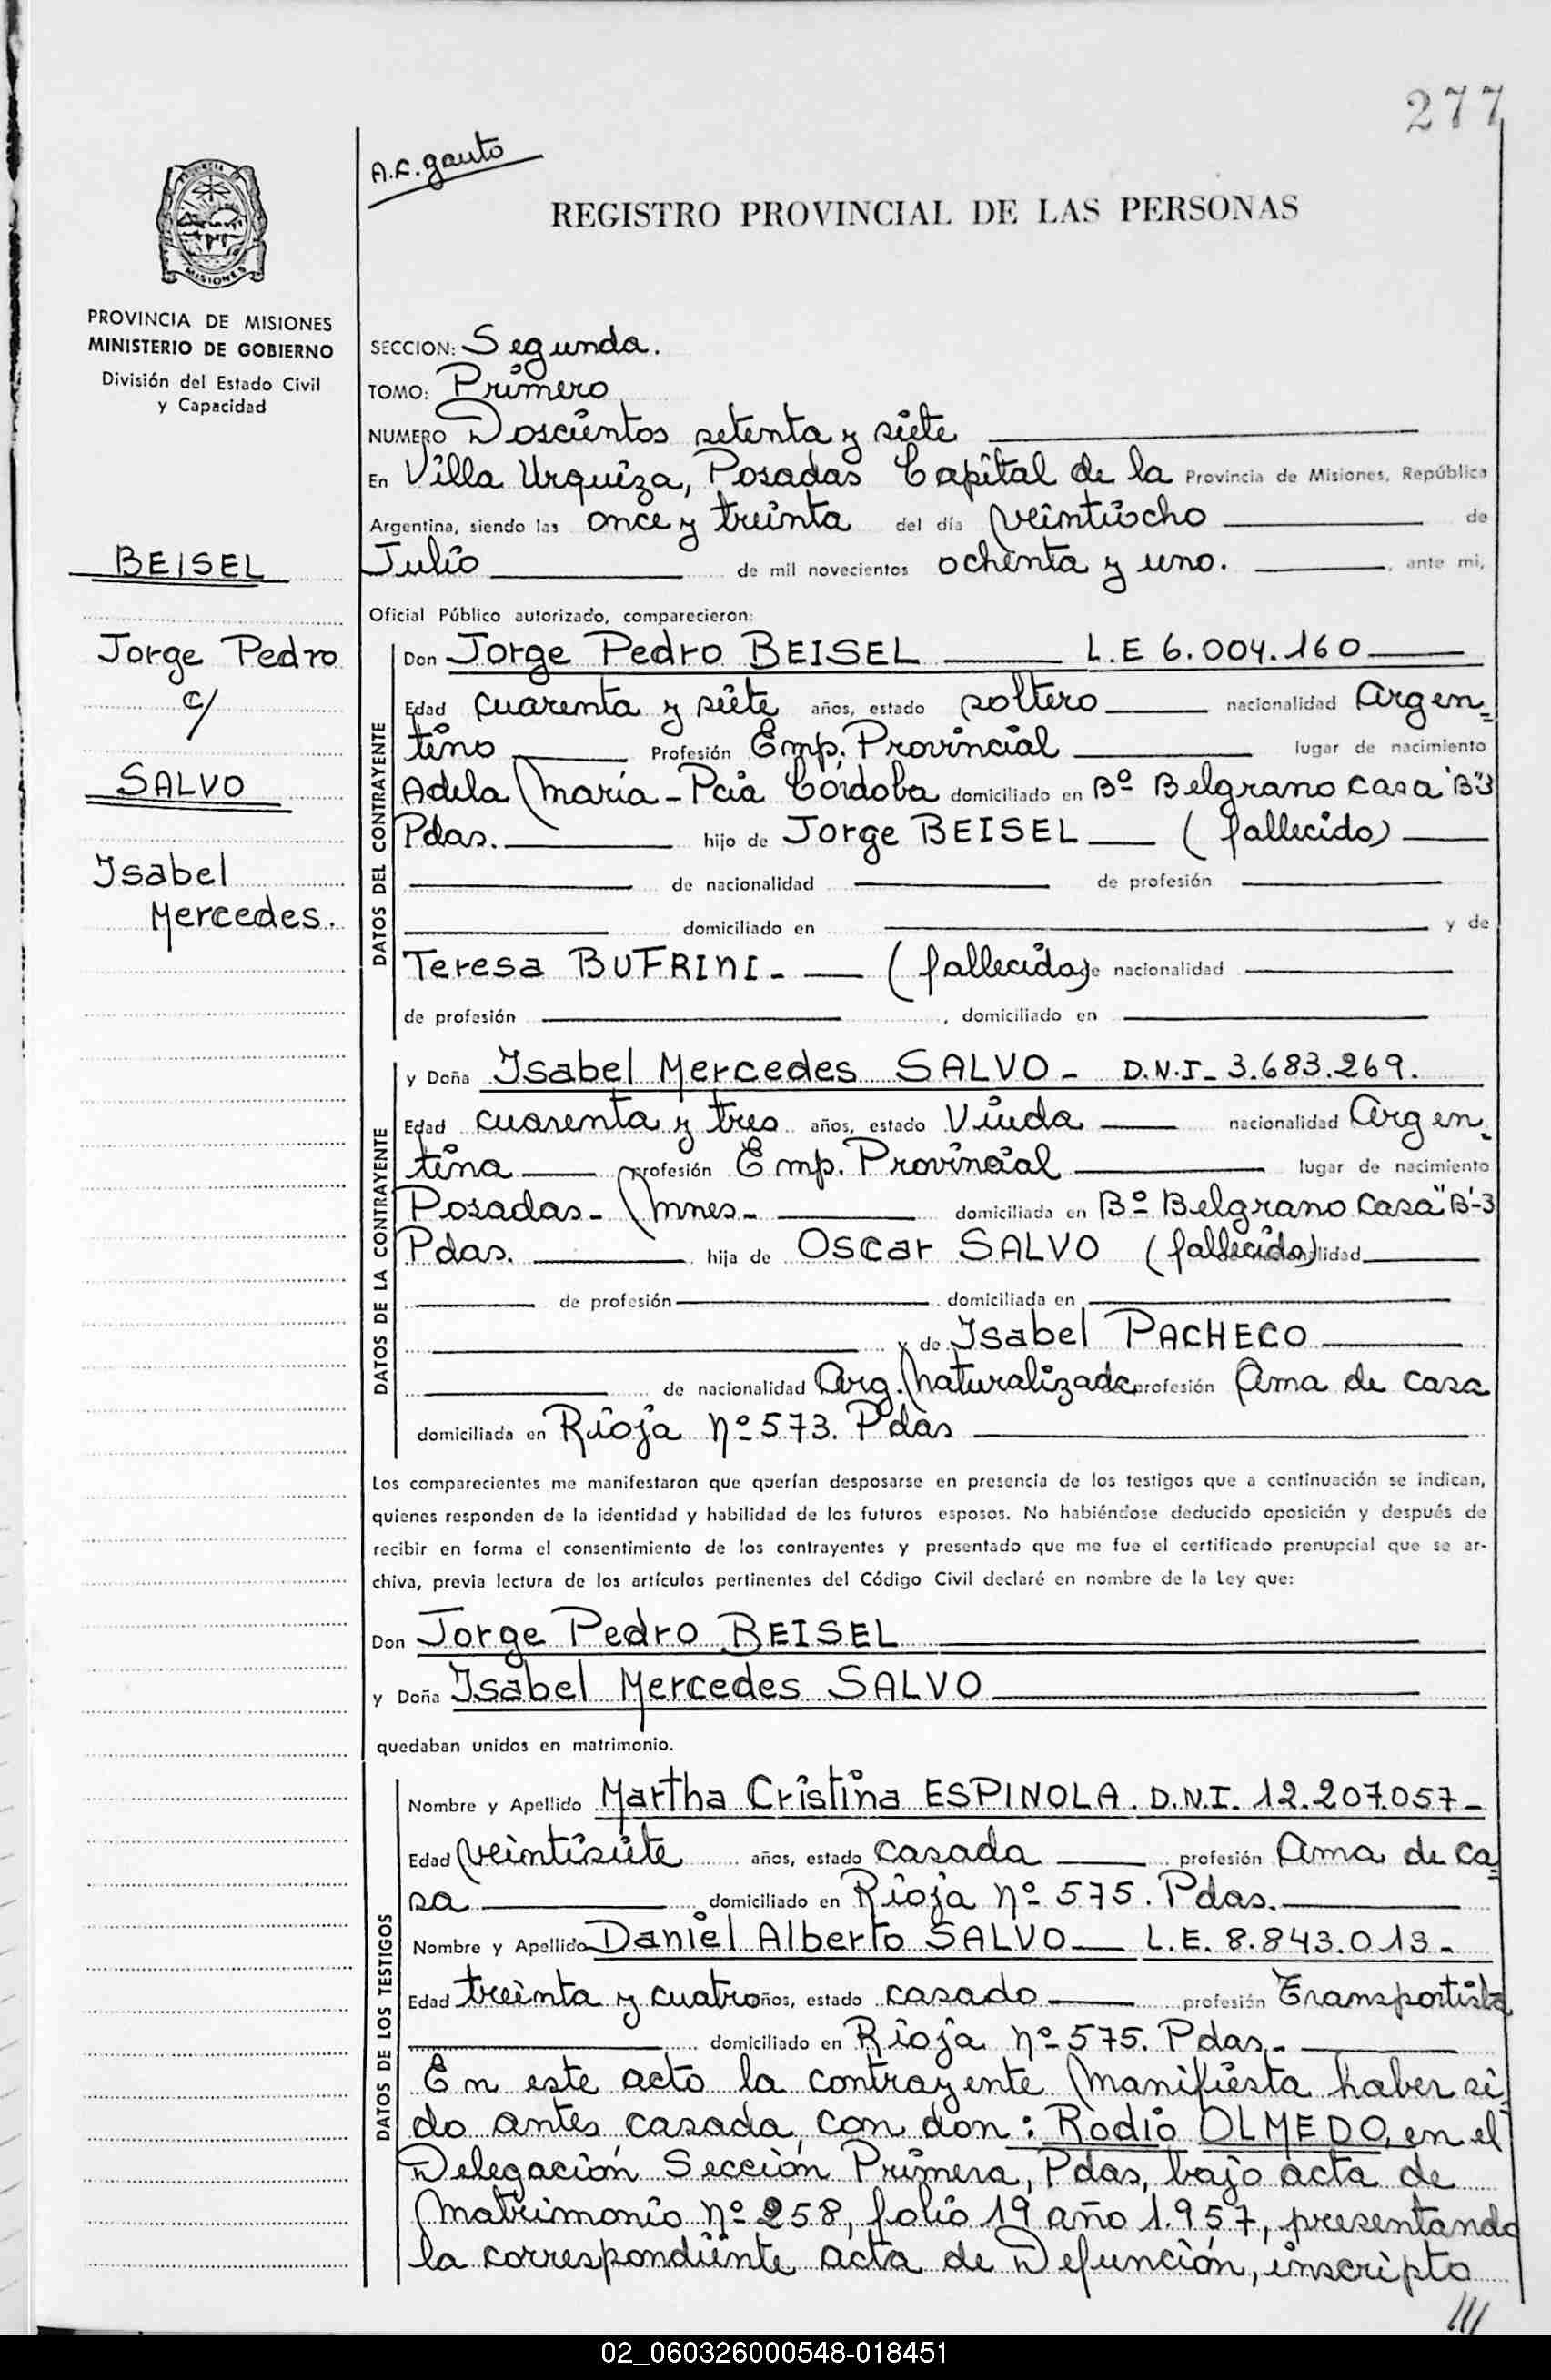 277
A.F. Gauto
REGISTRO PROVINCIAL DE LAS PERSONAS
PROVINCIA DE MISIONES
MINISTERIO DE GOBIERNO
División del Estado Civil
y Capacidad
BEISEL
Jorge Pedro
c/
SALVO
Isabel
Mercedes.
SECCION: Segunda.
TOMO: Primero
NUMERO Doscientos setenta y siete
En Villa Urquiza, Posadas Capital de la Provincia de Misiones, República
Argentina, siendo las once y treinta del día veintiocho de
Julio de mil novecientos ochenta y uno. , ante mi,
Oficial Público autorizado, comparecieron:
DATOS DEL CONTRAYENTE
Don Jorge Pedro BEISEL L.E 6.004.160
Edad cuarenta y siete años, estado soltero nacionalidad Argen=
tino Profesión Emp. Provincial lugar de nacimiento
Adela María - Pcia Córdoba domiciliado en Bº Belgrano casa "B"3
Pdas. hijo de Jorge BEISEL (fallecido)
de nacionalidad de profesión
domiciliado en y de
Teresa BUFRINI - (fallecida) de nacionalidad
de profesión , domiciliado en
DATOS DE LA CONTRAYENTE
y Doña Isabel Mercedes SALVO - D.N.I - 3.683.269.
Edad cuarenta y tres años, estado Viuda nacionalidad Argen=
tina profesión Emp. Provincial lugar de nacimiento
Posadas - Mnes - domiciliada en Bº Belgrano Casa "B"-3
Pdas. hija de Oscar SALVO (fallecido) nacionalidad
de profesión domiciliada en
y de Isabel PACHECO
de nacionalidad Arg. Naturalizada profesión Ama de casa
domiciliada en Rioja Nº 573. Pdas
Los comparecientes me manifestaron que querían desposarse en presencia de los testigos que a continuación se indican,
quienes responden de la identidad y habilidad de los futuros esposos. No habiéndose deducido oposición y después de
recibir en forma el consentimiento de los contrayentes y presentado que me fue el certificado prenupcial que se ar-
chiva, previa lectura de los artículos pertinentes del Código Civil declaré en nombre de la Ley que:
Don Jorge Pedro BEISEL
y Doña Isabel Mercedes SALVO
quedaban unidos en matrimonio.
DATOS DE LOS TESTIGOS
Nombre y Apellido Martha Cristina ESPINOLA. D.N.I. 12.207.057-
Edad veintisiete años, estado casada profesión Ama de ca=
sa domiciliado en Rioja Nº 575. Pdas.
Nombre y Apellido Daniel Alberto SALVO L.E. 8.843.013-
Edad treinta y cuatro años, estado casado profesión Transportista
domiciliado en Rioja Nº 575. Pdas.-
En este acto la contrayente manifiesta haber si
do antes casada con don: Rodio OLMEDO, en el
Delegación Sección Primera, Pdas, bajo acta de
Matrimonio Nº 258, folio 19 año 1.957, presentando
la correspondiente acta de Defunción, inscripto
///
02_060326000548-018451